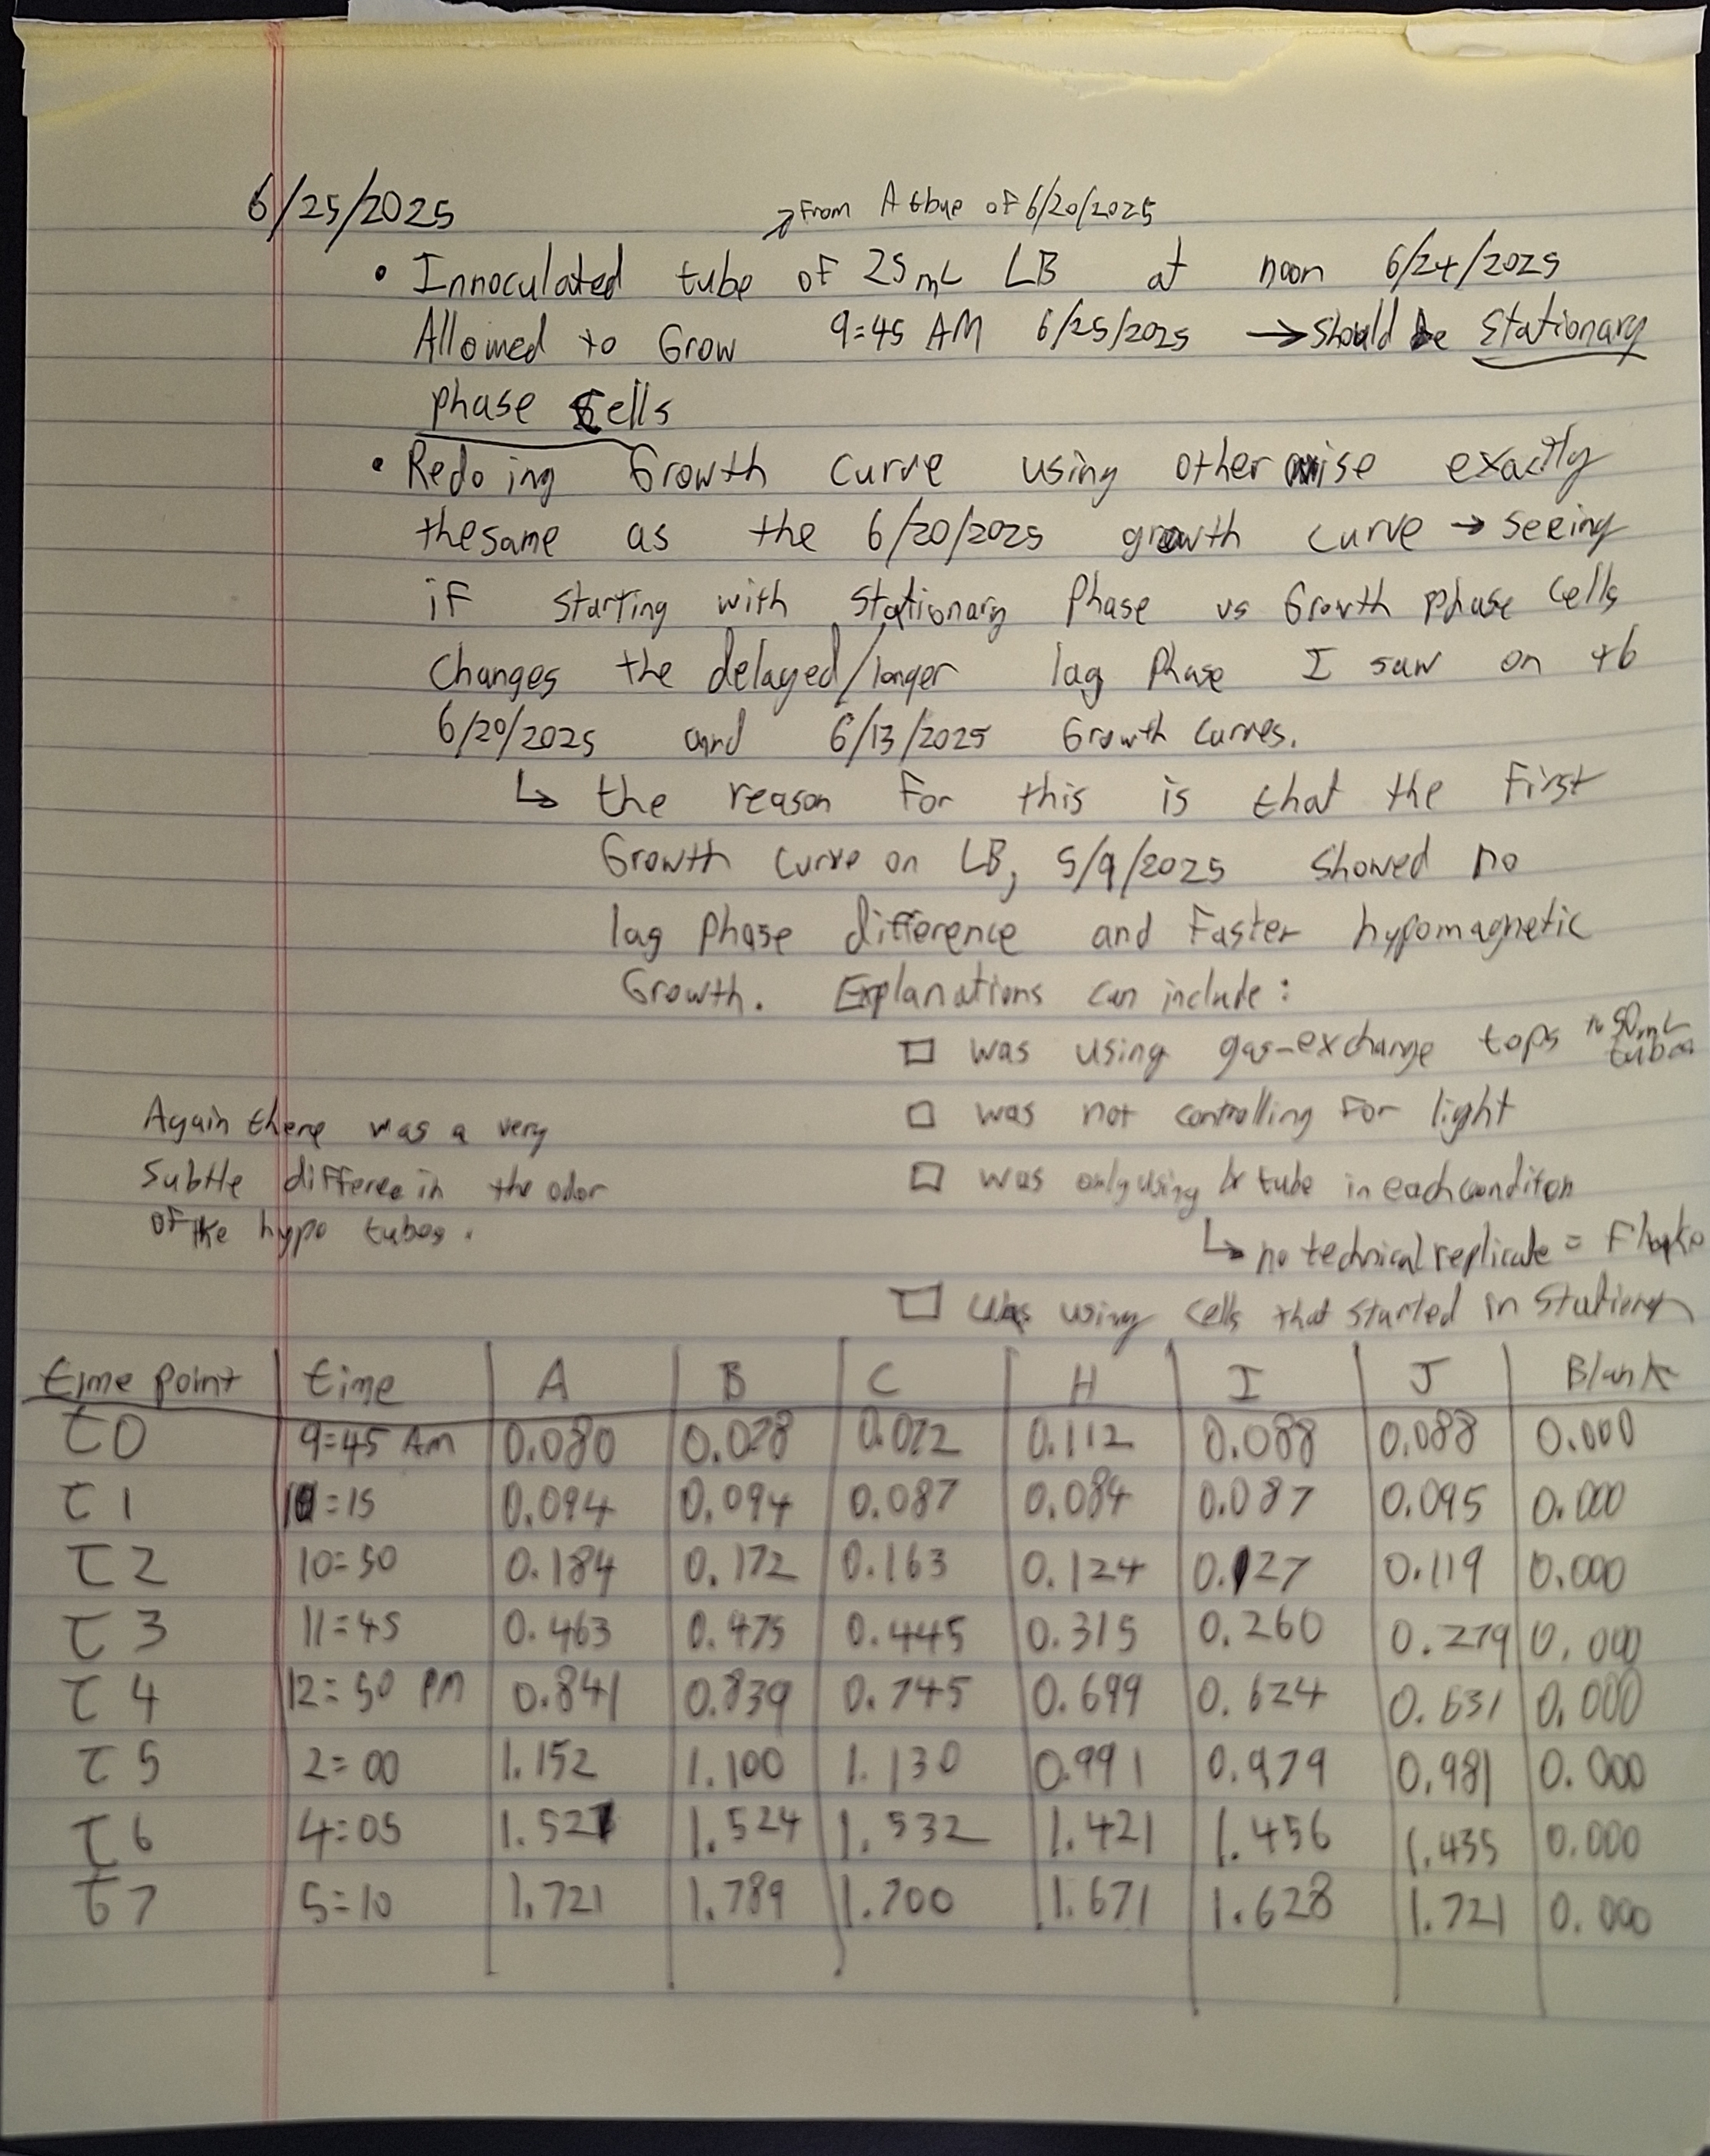 6/25/2025
From A tbue of 6/20/2025
• Innoculated tube of 25mL LB at noon 6/24/2025
Allowed to Grow 9:45 AM 6/25/2025 → should be Stationary
phase Cells
• Redoing Growth Curve using otherwise exactly
the same as the 6/20/2025 growth curve → seeing
if starting with stationary Phase vs Growth phase cells
Changes the delayed/longer lag phase I saw on
6/20/2025 and 6/13/2025 Growth Curves.
↳ the reason for this is that the First
Growth Curve on LB, 5/9/2025 showed no
lag phase difference and Faster hypomagnetic
Growth. Explanations can include:
□ was using gas-exchange tops 50mL
tubes
□ was not controlling for light
□ was only using tube in each conditon
↳ no technical replicate =
□ was using cells that started in
Again there was a very
subtle differece in the odor
of the hypo tubes.
time point time A B C H I J Blank
t0 9:45 AM 0.080 0.112 0.088 0.088 0.000
t1 10:15 0.094 0.094 0.087 0.084 0.087 0.095 0.000
t2 10:50 0.184 0.172 0.163 0.124 0.127 0.119 0.000
t3 11:45 0.463 0.475 0.445 0.315 0.260 0.279 0.000
t4 12:50 PM 0.841 0.839 0.745 0.699 0.624 0.631 0.000
t5 2:00 1.152 1.100 1.130 0.991 0.979 0.981 0.000
t6 4:05 1.524 1.532 1.421 1.456 1.435 0.000
t7 5:10 1.721 1.789 1.700 1.671 1.628 1.721 0.000